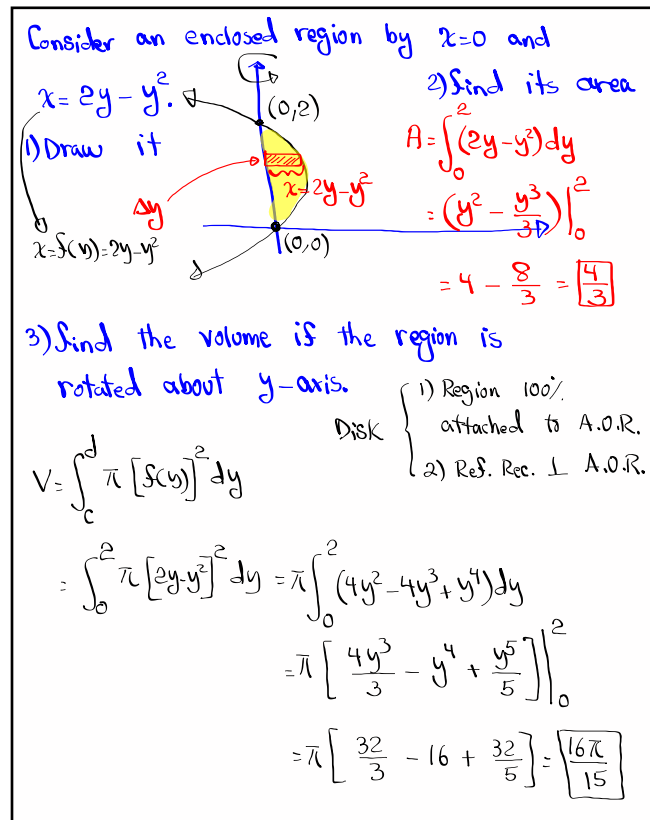 Consider an enclosed region by x=0 and
x = 2y - y².
1) Draw it
(0,2)
Δy
x=2y-y²
(0,0)
x=f(y)=2y-y²
2) find its area
A = ∫₀² (2y-y²) dy
= (y² - y³/3) |₀²
= 4 - 8/3 = 4/3
3) find the volume if the region is
rotated about y-axis.
Disk
1) Region 100%
attached to A.O.R.
2) Ref. Rec. ⊥ A.O.R.
V = ∫_c^d π [f(y)]² dy
= ∫₀² π [2y-y²]² dy = π ∫₀² (4y² - 4y³ + y⁴) dy
= π [ 4y³/3 - y⁴ + y⁵/5 ] |₀²
= π [ 32/3 - 16 + 32/5 ] = 16π/15